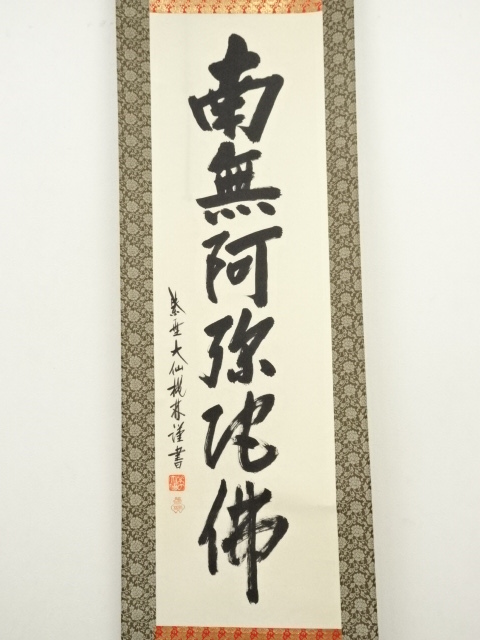 南無阿弥陀佛
紫野大仙桃林謹書